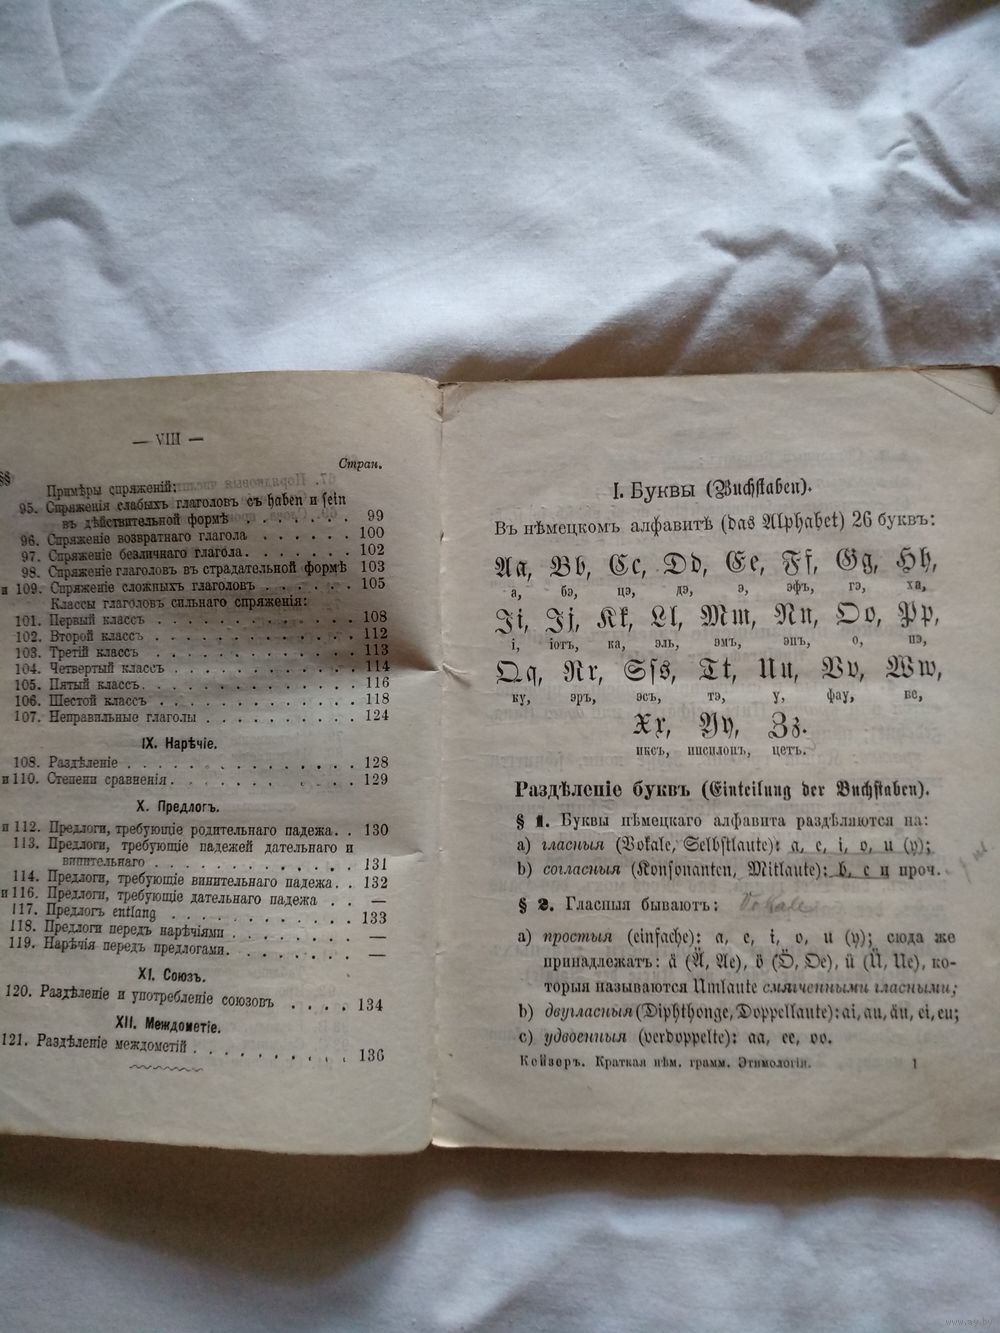 — VIII —
§§
Стран.
Примѣры спряженій:
95. Спряженія слабыхъ глаголовъ съ haben и sein
въ дѣйствительной формѣ . . . . . . . 99
96. Спряженіе возвратнаго глагола . . . . . . 100
97. Спряженіе безличнаго глагола. . . . . . . 102
98. Спряженіе глаголовъ въ страдательной формѣ 103
и 109. Спряженіе сложныхъ глаголовъ . . . . . . 105
Классы глаголовъ сильнаго спряженія:
101. Первый классъ . . . . . . . . . . . . . 108
102. Второй классъ . . . . . . . . . . . . . 112
103. Третій классъ . . . . . . . . . . . . . 113
104. Четвертый классъ . . . . . . . . . . . . 114
105. Пятый классъ. . . . . . . . . . . . . . 116
106. Шестой классъ . . . . . . . . . . . . . 118
107. Неправильные глаголы . . . . . . . . . . 124
IX. Нарѣчіе.
108. Раздѣленіе . . . . . . . . . . . . . . . 128
и 110. Степени сравненія. . . . . . . . . . . . 129
X. Предлогъ.
и 112. Предлоги, требующіе родительнаго падежа. . 130
113. Предлоги, требующіе падежей дательнаго и
винительнаго . . . . . . . . . . . . . 131
114. Предлоги, требующіе винительнаго падежа. . 132
и 116. Предлоги, требующіе дательнаго падежа . . —
117. Предлогъ entlang . . . . . . . . . . . . 133
118. Предлоги передъ нарѣчіями . . . . . . . . —
119. Нарѣчія передъ предлогами. . . . . . . . —
XI. Союзъ.
120. Раздѣленіе и употребленіе союзовъ . . . . 134
XII. Междометіе.
121. Раздѣленіе междометій . . . . . . . . . . 136
I. Буквы (Buchstaben).
Въ нѣмецкомъ алфавитѣ (das Alphabet) 26 буквъ:
Aa, Bb, Cc, Dd, Ee, Ff, Gg, Hh,
а, бэ, цэ, дэ, э, эфъ, гэ, ха,
Ii, Jj, Kk, Ll, Mm, Nn, Oo, Pp,
і, іотъ, ка, эль, эмъ, энъ, о, пэ,
Qq, Rr, Sſs, Tt, Uu, Vv, Ww,
ку, эръ, эсъ, тэ, у, фау, ве,
Xx, Yy, Zz.
иксъ, ипсилонъ, цетъ.
Раздѣленіе буквъ (Einteilung der Buchstaben).
§ 1. Буквы нѣмецкаго алфавита раздѣляются на:
a) гласныя (Vokale, Selbstlaute): a, e, i, o, u (y);
b) согласныя (Konsonanten, Mitlaute): b, c и проч.
§ 2. Гласныя бываютъ: Vokale
a) простыя (einfache): a, e, i, o, u (y); сюда же
принадлежатъ: ä (Ä, Ae), ö (Ö, Oe), ü (Ü, Ue), ко-
торыя называются Umlaute смягченными гласными;
b) двугласныя (Diphthonge, Doppellaute): ai, au, äu, ei, eu;
c) удвоенныя (verdoppelte): aa, ee, oo.
Кейзеръ. Краткая нѣм. грамм. Этимологія. 1
www.ay.by